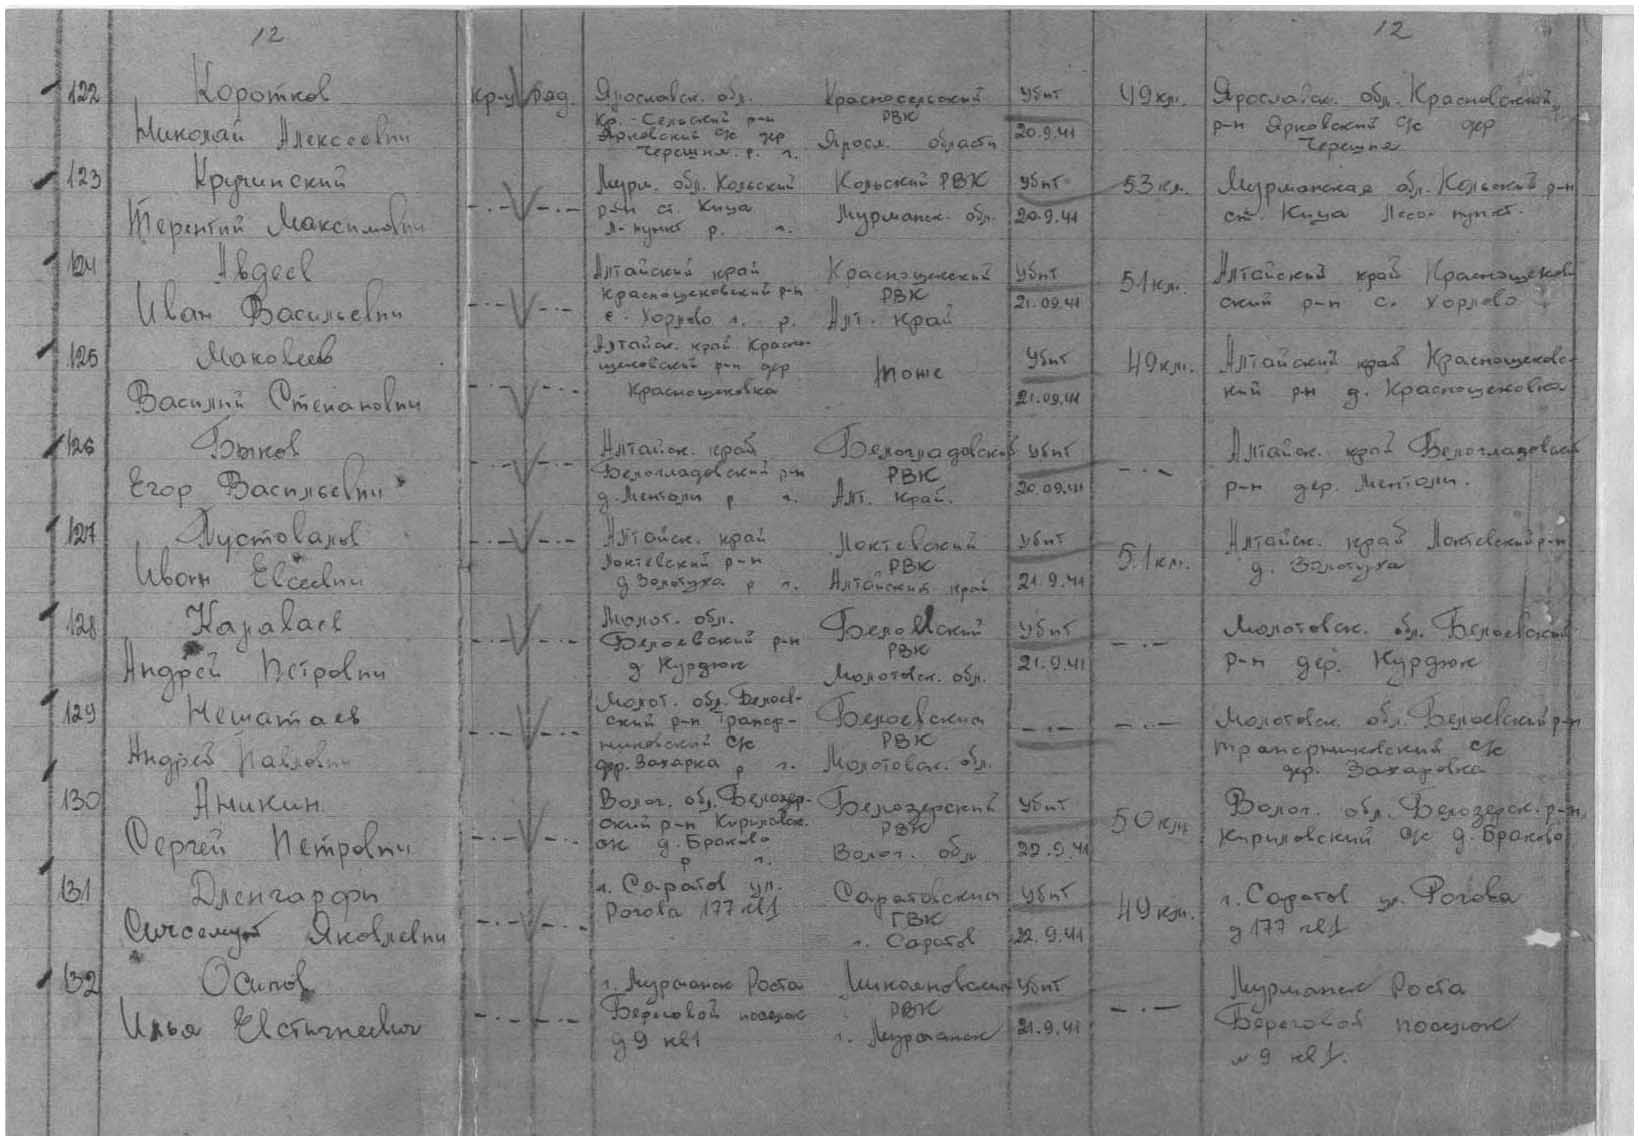 12 12
122 Коротков кр-ц ряд. Ярославск. обл. Красносельский убит 49 км. Ярославск. обл. Красновский
Кр.-Сельский р-н РВК
Николай Алексеевич Ярковский с/с дер Яросл. области 20.9.41 р-н Ярковский с/с дер
Черешня р. г. Черешня
123 Кручинский Мурм. обл. Кольский Кольский РВК убит 53 км. Мурманская обл. Кольский р-н
Терентий Максимович -·- -·- р-н ст. Кица Мурманск. обл. 20.9.41 ст. Кица Лесо- пункт.
Л- пункт р. г.
124 Авдеев Алтайский край Краснощекский убит 51 км. Алтайский край Краснощеков
Краснощековский р-н РВК
Иван Васильевич -·- -·- с. Хорлово г. р. Алт. край 21.09.41 ский р-н с. Хорлово
125 Маковеев Алтайск. край Красно- убит 49 км. Алтайский край Краснощековс-
щековский р-н дер тоже
Василий Степанович -·- -·- Краснощековка 21.09.41 кий р-н д. Краснощековка
126 Быков Алтайск. край Белогладовский убит -·- Алтайск. край Белогладовский
Белогладовский р-н РВК
Егор Васильевич -·- -·- д. Ментоли р г. Алт. край. 20.09.41 р-н дер. Ментоли.
127 Пустовалов Алтайск. край Локтевский убит 51 км. Алтайск. край Локтевский р-н
Локтевский р-н РВК
Иван Евсеевич -·- -·- д Золотуха р г. Алтайский край 21.9.41 д. Золотуха
128 Караваев Молот. обл. Белоевский убит -·- Молотовск. обл. Белоевский
Белоевский р-н РВК
Андрей Петрович -·- -·- д Курдюк Молотовск. обл. 21.9.41 р-н дер. Курдюк
129 Нешатаев Молот. обл. Белоев- Белоевский -·- -·- Молотовск. обл. Белоевский р-н
ский р-н
Андрей Павлович -·- -·- с/с РВК с/с
дер. Захарка р г. Молотовск. обл. дер. Захаровка
130 Аникин Волог. обл. Белозер- Белозерский убит 50 км Волог. обл. Белозерск. р-н,
ский р-н Кириловск. РВК
Сергей Петрович -·- -·- с/с д. Браково Волог. обл 22.9.41 Кириловский с/с д. Браково
р г.
131 г. Саратов ул. Саратовский убит 49 км. г. Саратов ул. Рогова
Рогова 177 кв 1 ГВК
Яковлевич -·- -·- г. Саратов 22.9.41 д 177 кв 1
132 Осипов г. Мурманск Роста Микояновский убит -·- Мурманск Роста
Илья Евстигнеевич -·- -·- Береговой поселок РВК Береговой поселок
д 9 кв 1 г. Мурманск 21.9.41 д 9 кв 1.